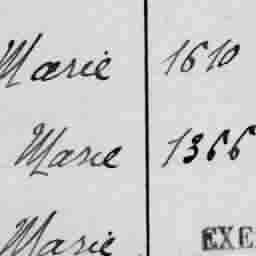 Marie 1610
Marie 1366
Marie EXE